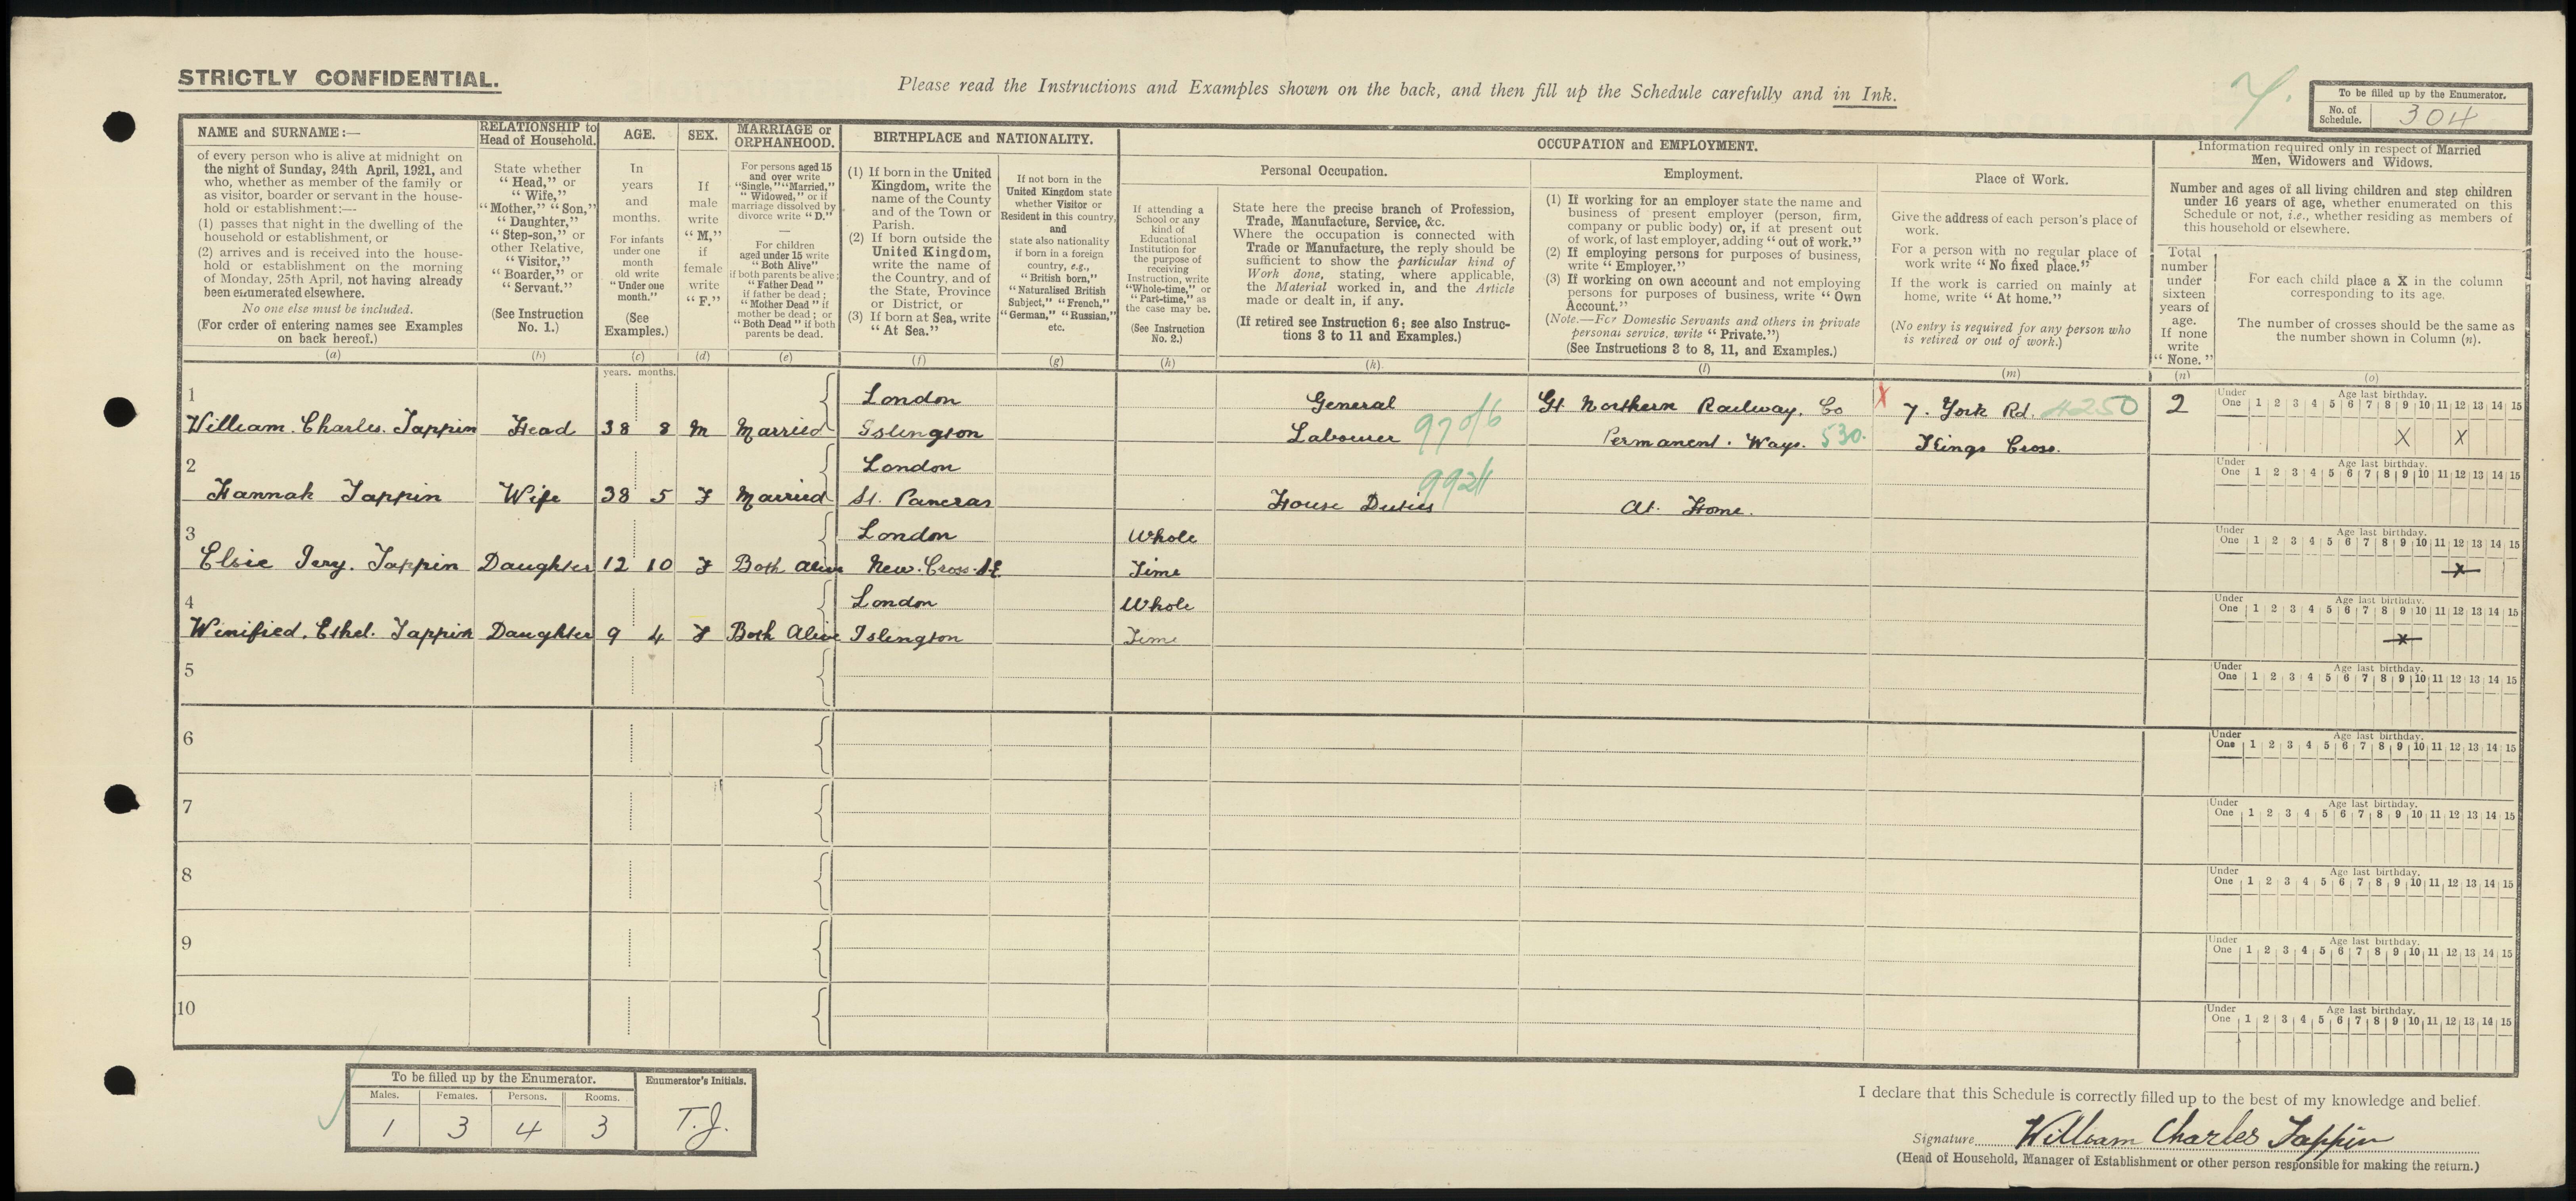 STRICTLY CONFIDENTIAL.
Please read the Instructions and Examples shown on the back, and then fill up the Schedule carefully and in Ink.
7.
To be filled up by the Enumerator.
No. of Schedule. 304
NAME and SURNAME:—
of every person who is alive at midnight on
the night of Sunday, 24th April, 1921, and
who, whether as member of the family or
as visitor, boarder or servant in the house-
hold or establishment:—
(1) passes that night in the dwelling of the
household or establishment, or
(2) arrives and is received into the house-
hold or establishment on the morning
of Monday, 25th April, not having already
been enumerated elsewhere.
No one else must be included.
(For order of entering names see Examples
on back hereof.)
(a)
RELATIONSHIP to
Head of Household.
State whether
"Head," or
"Wife,"
"Mother," "Son,"
"Daughter,"
"Step-son," or
other Relative,
"Visitor,"
"Boarder," or
"Servant."
(See Instruction
No. 1.)
(b)
AGE.
In
years
and
months.
For infants
under one
month
old write
"Under one
month."
(See
Examples.)
(c)
years. months.
SEX.
If
male
write
"M,"
if
female
write
"F."
(d)
MARRIAGE or
ORPHANHOOD.
For persons aged 15
and over write
"Single," "Married,"
"Widowed," or if
marriage dissolved by
divorce write "D."
—
For children
aged under 15 write
"Both Alive"
if both parents be alive;
"Father Dead"
if father be dead;
"Mother Dead" if
mother be dead; or
"Both Dead" if both
parents be dead.
(e)
BIRTHPLACE and NATIONALITY.
(1) If born in the United
Kingdom, write the
name of the County
and of the Town or
Parish.
(2) If born outside the
United Kingdom,
write the name of
the Country, and of
the State, Province
or District, or
(3) If born at Sea, write
"At Sea."
(f)
If not born in the
United Kingdom state
whether Visitor or
Resident in this country,
and
state also nationality
if born in a foreign
country, e.g.,
"British born,"
"Naturalised British
Subject," "French,"
"German," "Russian,"
etc.
(g)
OCCUPATION and EMPLOYMENT.
Personal Occupation.
If attending a
School or any
kind of
Educational
Institution for
the purpose of
receiving
Instruction, write
"Whole-time," or
"Part-time," as
the case may be.
(See Instruction
No. 2.)
(h)
State here the precise branch of Profession,
Trade, Manufacture, Service, &c.
Where the occupation is connected with
Trade or Manufacture, the reply should be
sufficient to show the particular kind of
Work done, stating, where applicable,
the Material worked in, and the Article
made or dealt in, if any.
(If retired see Instruction 6; see also Instruc-
tions 3 to 11 and Examples.)
(k)
Employment.
(1) If working for an employer state the name and
business of present employer (person, firm,
company or public body) or, if at present out
of work, of last employer, adding "out of work."
(2) If employing persons for purposes of business,
write "Employer."
(3) If working on own account and not employing
persons for purposes of business, write "Own
Account."
(Note.—For Domestic Servants and others in private
personal service, write "Private.")
(See Instructions 3 to 8, 11, and Examples.)
(l)
Place of Work.
Give the address of each person's place of
work.
For a person with no regular place of
work write "No fixed place."
If the work is carried on mainly at
home, write "At home."
(No entry is required for any person who
is retired or out of work.)
(m)
Information required only in respect of Married
Men, Widowers and Widows.
Number and ages of all living children and step children
under 16 years of age, whether enumerated on this
Schedule or not, i.e., whether residing as members of
this household or elsewhere.
Total
number
under
sixteen
years of
age.
If none
write
"None."
(n)
For each child place a X in the column
corresponding to its age.
The number of crosses should be the same as
the number shown in Column (n).
(o)
1 London General Gt Northern Railway. Co X 7. York Rd. 4250 2
William. Charles. Tappin Head 38 8 M Married Islington Labourer 970/6 Permanent. Ways. 530. Kings Cross. X X
Under One 1 2 3 4 5 6 7 8 9 10 11 12 13 14 15 Age last birthday.
2 London
Hannah Tappin Wife 38 5 F Married St. Pancras House Duties At. Home.
Under One 1 2 3 4 5 6 7 8 9 10 11 12 13 14 15 Age last birthday.
3 London Whole
Elsie Ivry. Tappin Daughter 12 10 F Both alive New. Cross. S.E. Time X
Under One 1 2 3 4 5 6 7 8 9 10 11 12 13 14 15 Age last birthday.
4 London Whole
Winified. Ethel. Tappin Daughter 9 4 F Both Alive Islington Time X
Under One 1 2 3 4 5 6 7 8 9 10 11 12 13 14 15 Age last birthday.
5
Under One 1 2 3 4 5 6 7 8 9 10 11 12 13 14 15 Age last birthday.
6
Under One 1 2 3 4 5 6 7 8 9 10 11 12 13 14 15 Age last birthday.
7
Under One 1 2 3 4 5 6 7 8 9 10 11 12 13 14 15 Age last birthday.
8
Under One 1 2 3 4 5 6 7 8 9 10 11 12 13 14 15 Age last birthday.
9
Under One 1 2 3 4 5 6 7 8 9 10 11 12 13 14 15 Age last birthday.
10
Under One 1 2 3 4 5 6 7 8 9 10 11 12 13 14 15 Age last birthday.
To be filled up by the Enumerator. Enumerator's Initials.
Males. Females. Persons. Rooms.
1 3 4 3 T.J.
I declare that this Schedule is correctly filled up to the best of my knowledge and belief.
Signature William Charles Tappin
(Head of Household, Manager of Establishment or other person responsible for making the return.)